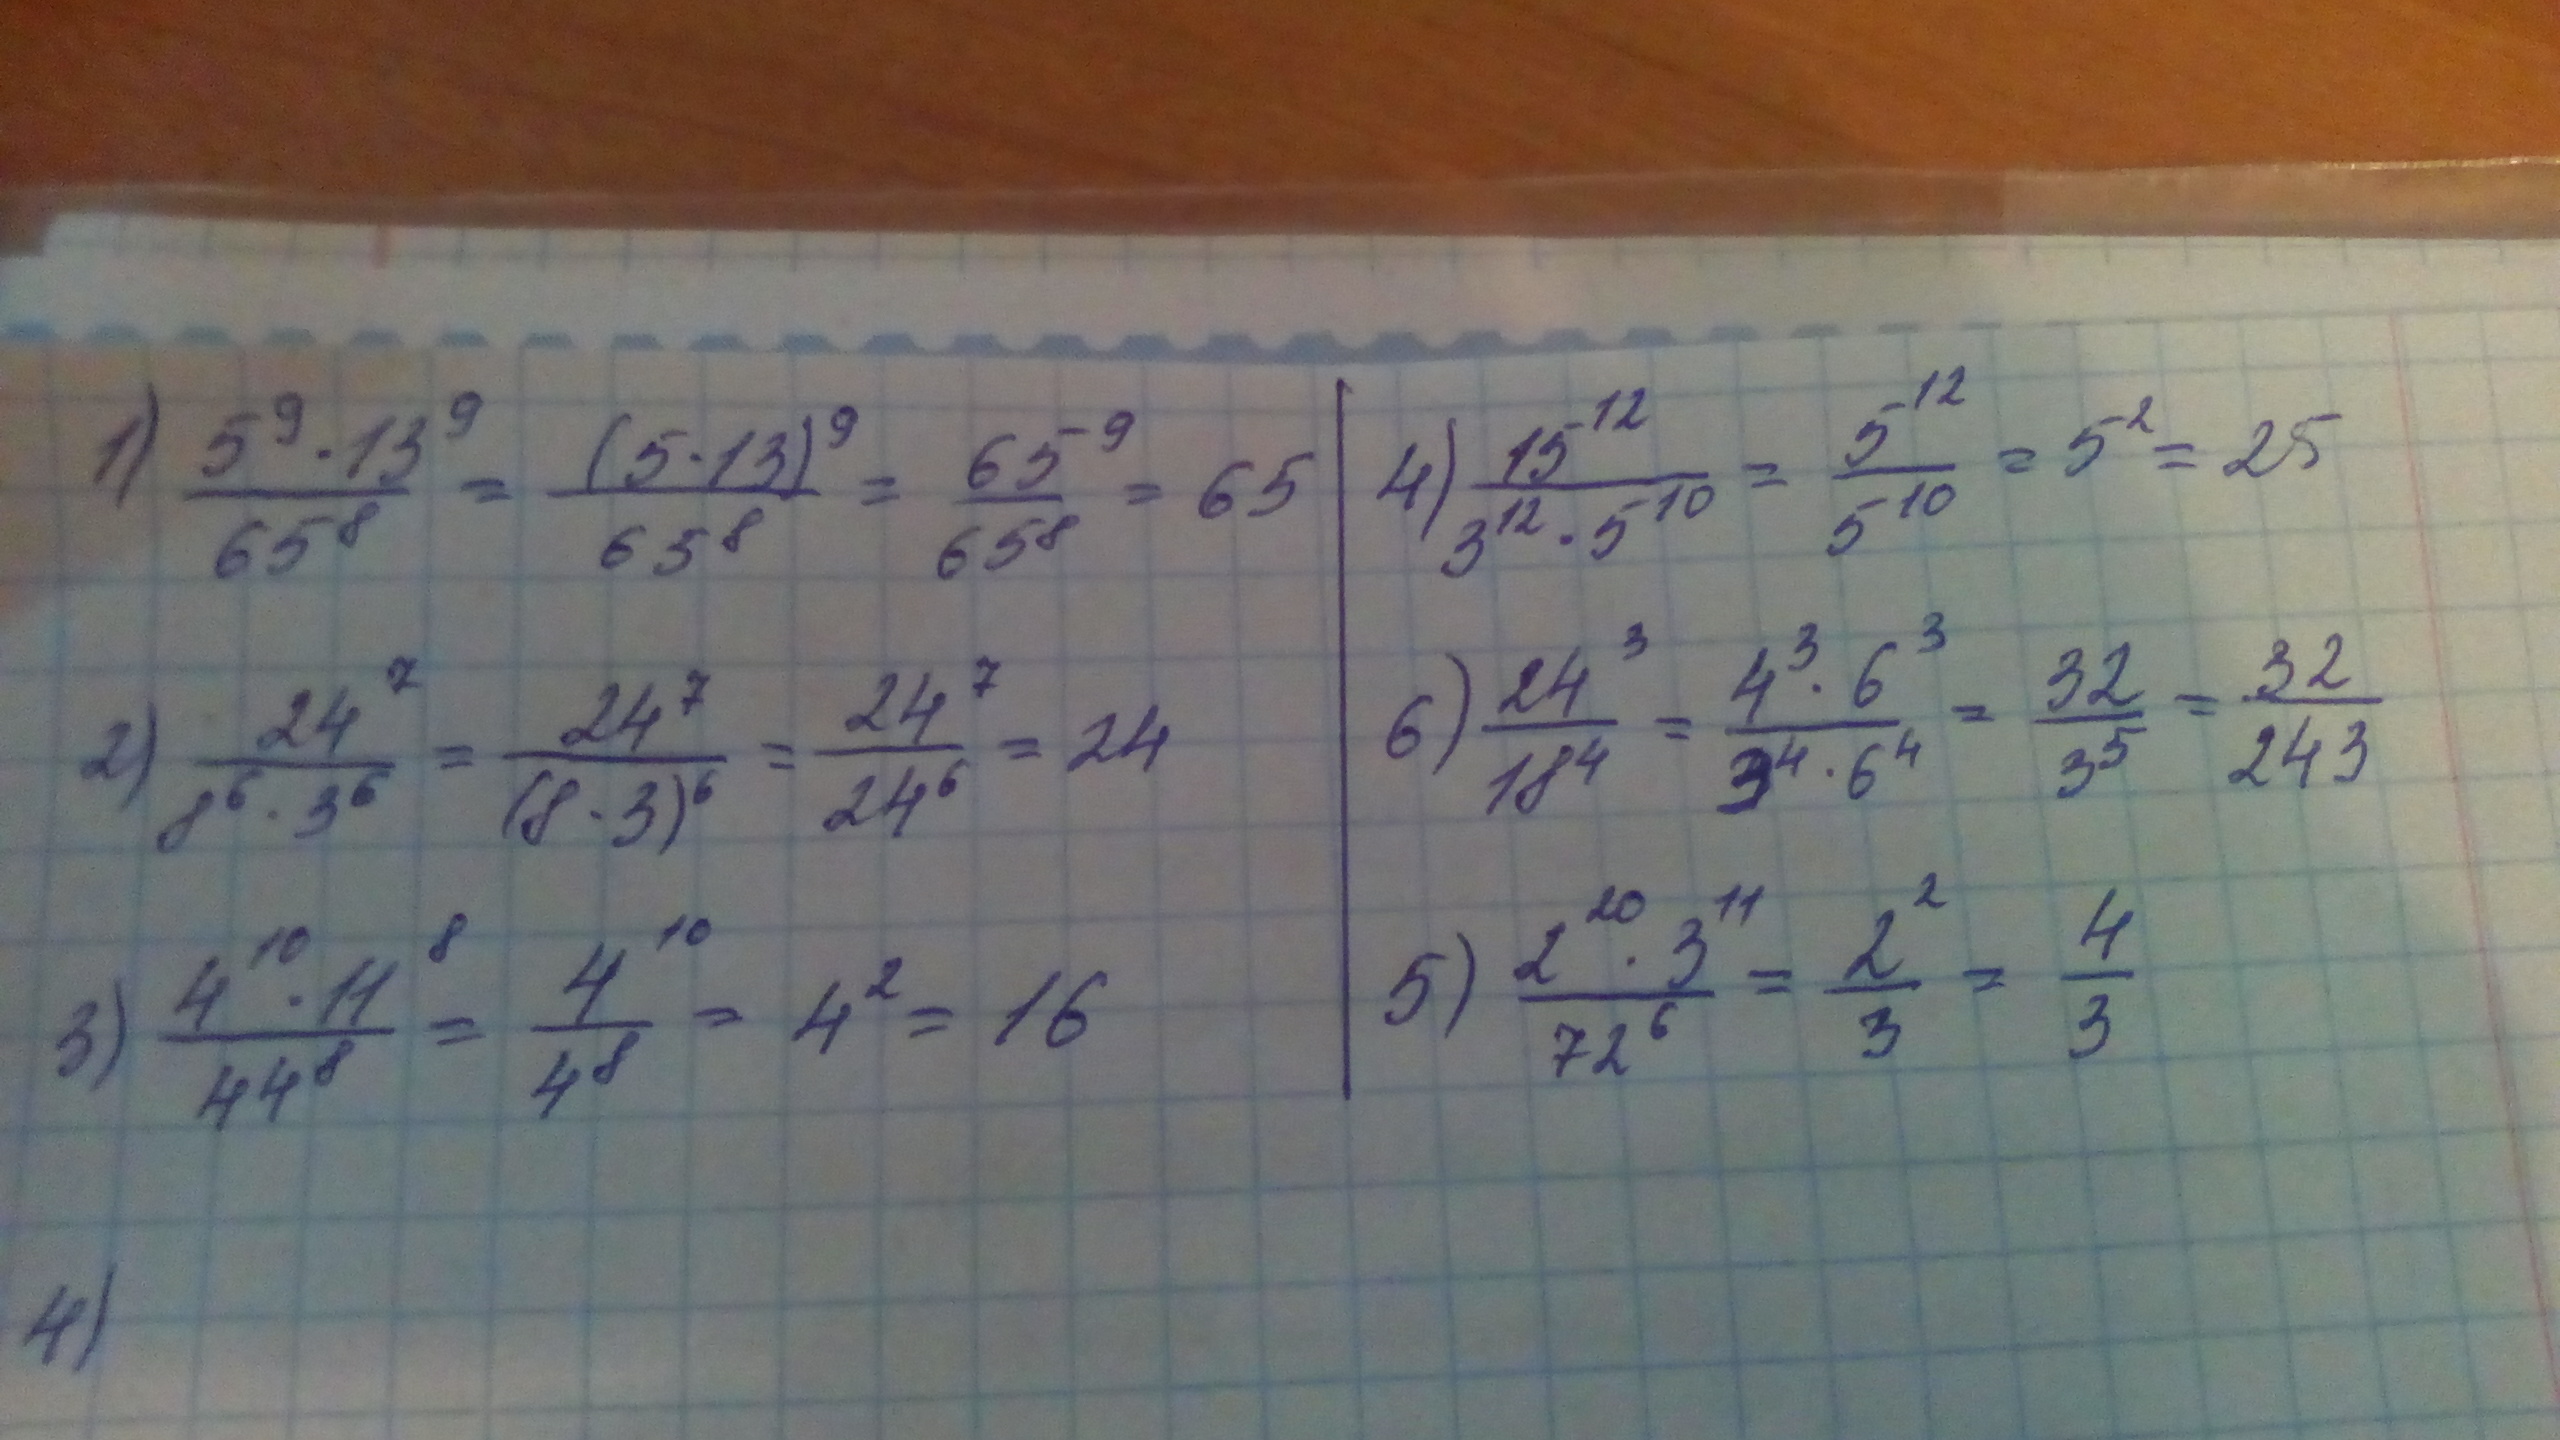 1) 5⁹·13⁹/65⁸ = (5·13)⁹/65⁸ = 65⁹/65⁸ = 65
2) 24⁷/8⁶·3⁶ = 24⁷/(8·3)⁶ = 24⁷/24⁶ = 24
3) 4¹⁰·11⁸/44⁸ = 4¹⁰/4⁸ = 4² = 16
4)
4) 15¹²/3¹²·5¹⁰ = 5¹²/5¹⁰ = 5² = 25
6) 24³/18⁴ = 4³·6³/3⁴·6⁴ = 32/3⁵ = 32/243
5) 2²⁰·3¹¹/72⁶ = 2²/3 = 4/3